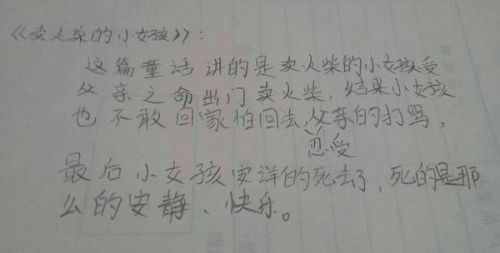 《卖火柴的小女孩》：
这篇童话讲的是卖火柴的小女孩受
父亲之命出门卖火柴，结果小女孩
也不敢回家怕回去忍受父亲的打骂，
最后小女孩安详的死去了，死的是那
么的安静、快乐。